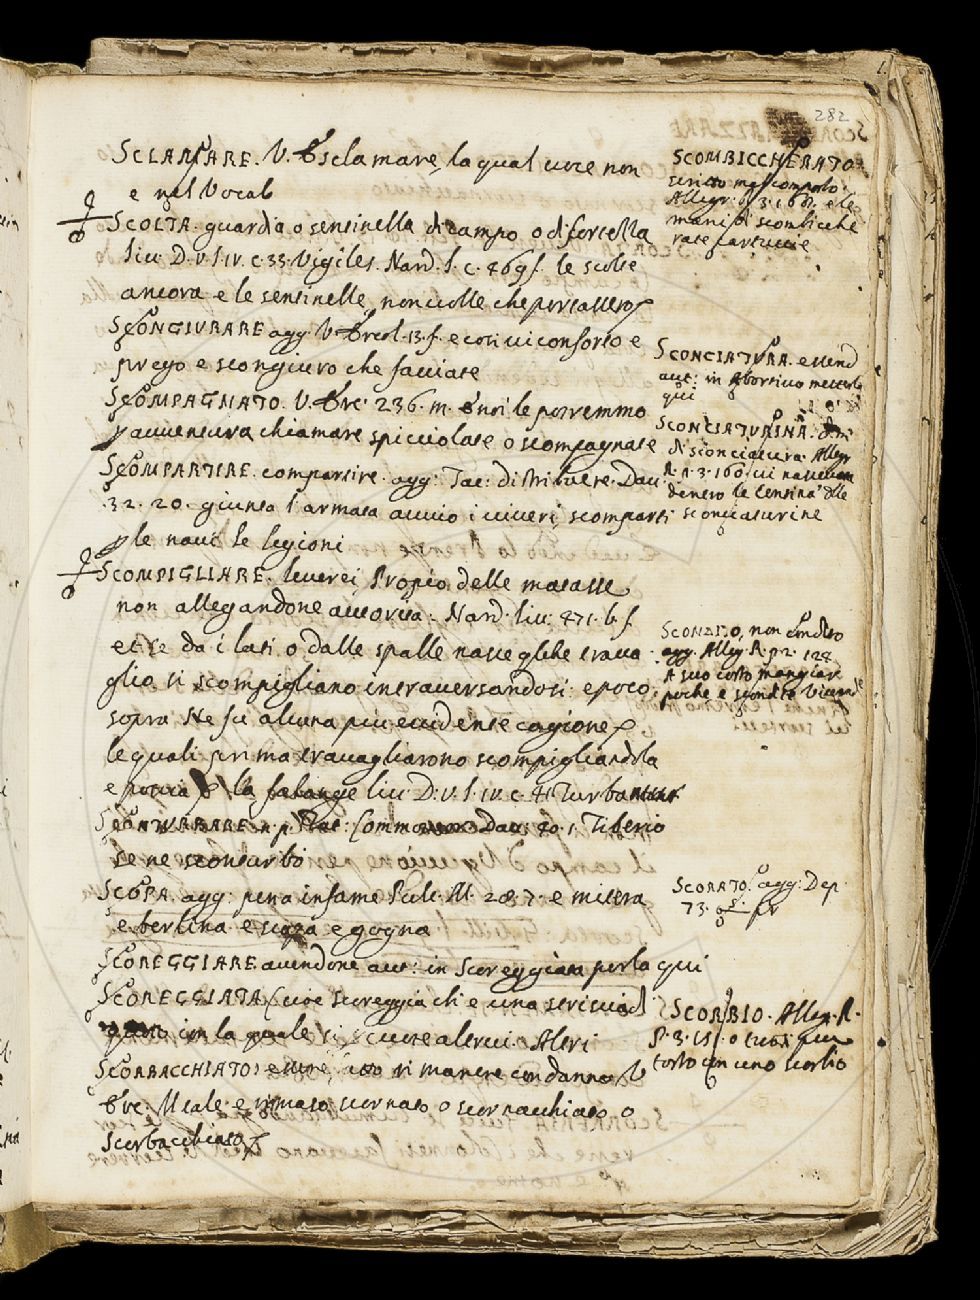 282
SCLAMARE. V. Esclamare, la qual voce non
e nel Vocab
SCOLTA. guardia o sentinella di campo o di fortella
Liv. D. V. l. IV. c. 33. Vigiles. Nard. l. c. 469 f. le scolte
ancora e le sentinelle non volle che portassero
SCONGIURARE agg. V. Ercol. 13. f. e così vi conforto e
prego e scongiuro che facciate
SCOMPAGNATO. V. Erc. 236. m. E noi le potremmo
avventura chiamare spicciolate o scompagnate
SCOMPARTIRE. compartire. agg: Tac: distribuere. Dav
32. 20. giunta l armata avviò i viveri scompartì
le navi le legioni
SCOMPIGLIARE. leverei, Propio delle matasse
non allegandone autorità. Nard. Liv: 471. b. f
et se da i lati o dalle spalle nasceglehe trava
glio si scompigliano intraversandosi: e poco
sopra Ne fu alcuna più evidente cagione
le quali prima travagliarono scompigliandola
e poscia la falange Liv: D. V. l. IV. c. 41 Turbantur
SCONTURBARE n. p. Tac: Dav. 40. 1. Tiberio
se ne sconturbò
SCOPA. agg: pena infame Pule. M. 287. e mitera
e berlina e scopa e gogna
SCOREGGIARE avendone aut: in Scoreggiata porla qui
SCOREGGIATA Cuoe scoreggia chi e una striscia di
con la quale si scuote altrui. Altri
SCORBACCHIATO: rimanere con danno V
Erc: M tale e rimaso scornato o scornacchiato o
scorbacchiato
SCOMBICCHERATO
scritto mal composto.
Allegr. P. 3. 168. e le
mani di scombiche
rate cartucce
SCONCIATURA. essend
aut: in Abortivo metterla
qui
SCONCIATURINA. dim:
di sconciatura. Allegr
R. P. 3. 160. vi nasceva
denero le centina delle
sconciaturine
SCONDITO, non condito
agg. Allegr. R. p. 2. 128
A suo costo mangiar
poche e scondite vivande
SCORATO. agg: Dep
73. pr
SCORBIO. Allegr. R.
P. 3. 15.
torto con uno scorbio